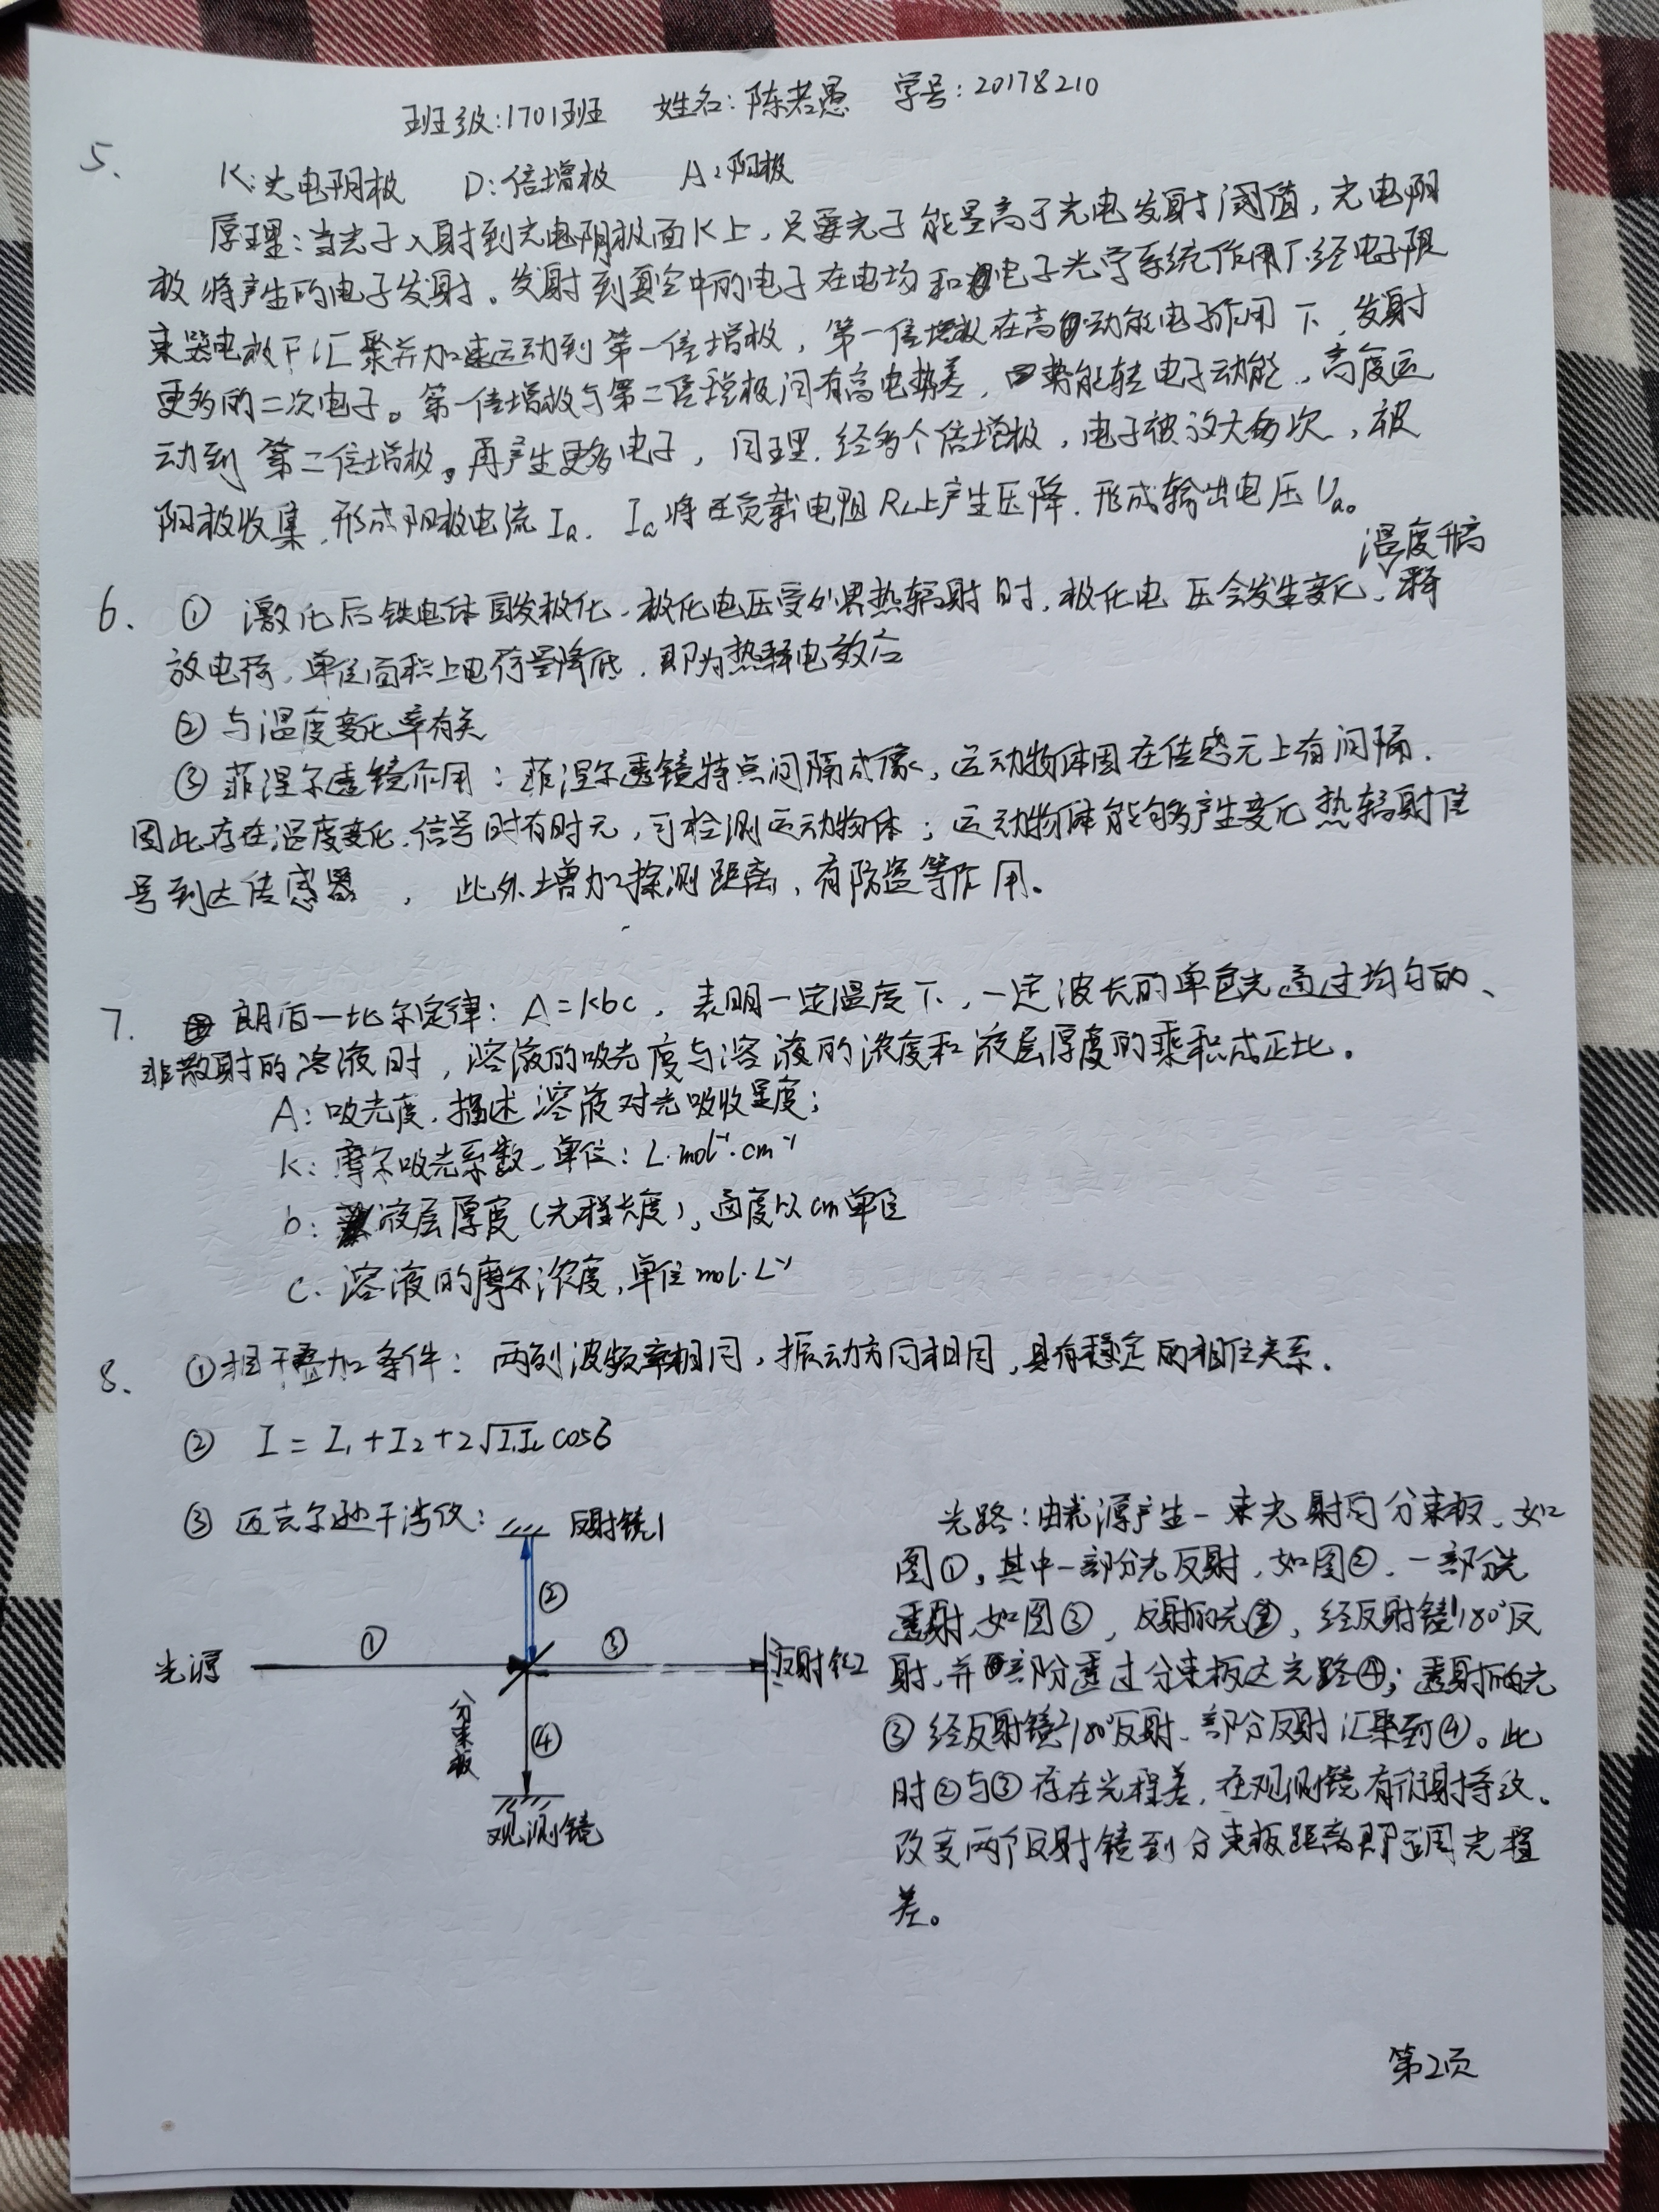 班级:1701班 姓名:陈若愚 学号:20178210
5、 K:光电阴极 D:倍增极 A:阳极
原理:当光子入射到光电阴极面K上,只要光子能量高于光电发射阈值,光电阴
极将产生的电子发射。发射到真空中的电子在电场和电子光学系统作用下,经电子限
束器电极F汇聚并加速运动到第一倍增极,第一倍增极在高动能电子作用下,发射
更多的二次电子。第一倍增极与第二倍增极间有高电势差,势能转电子动能,高度运
动到第二倍增极。再产生更多电子,同理.经多个倍增极,电子被放大多次,被
阳极收集,形成阳极电流Ia. Ia将在负载电阻RL上产生压降.形成输出电压Ua。
温度升高
6、 ① 激化后铁电体自发极化、极化电压受外界热辐射时,极化电压会发生变化,释
放电荷,单位面积上电荷量降低,即为热释电效应
② 与温度变化率有关
③ 菲涅尔透镜作用:菲涅尔透镜特点间隔成像,运动物体因在传感元上有间隔.
因此存在温度变化.信号时有时无,可检测运动物体;运动物体能够产生变化热辐射信
号到达传感器,此外增加探测距离,有防盗等作用。
7. 朗伯一比尔定律: A=Kbc,表明一定温度下,一定波长的单色光通过均匀的、
非散射的溶液时,溶液的吸光度与溶液的浓度和液层厚度的乘积成正比。
A:吸光度.描述溶液对光吸收呈度;
K:摩尔吸光系数、单位:L·mol⁻¹·cm⁻¹
b:液层厚度(光程长度),通度以cm单位
C.溶液的摩尔浓度,单位mol·L⁻¹
8、 ①相干叠加条件:两列波频率相同,振动方向相同,具有稳定的相位关系.
② I=I₁+I₂+2√I₁I₂ cosδ
③ 迈克尔逊干涉仪:
反射镜1
②
光源 ① ③ 反射镜2
分束板
④
观测镜
光路:由光源产生一束光射向分束板、如
图①,其中一部分光反射,如图②.一部分光
透射,如图③,反射的光②,经反射镜1180°反
射,并部分透过分束板达光路④;透射的光
③经反射镜2180°反射、部分反射汇聚到④。此
时②与③存在光程差,在观测镜有条纹。
改变两个反射镜到分束板距离即可调光程
差。
第2页